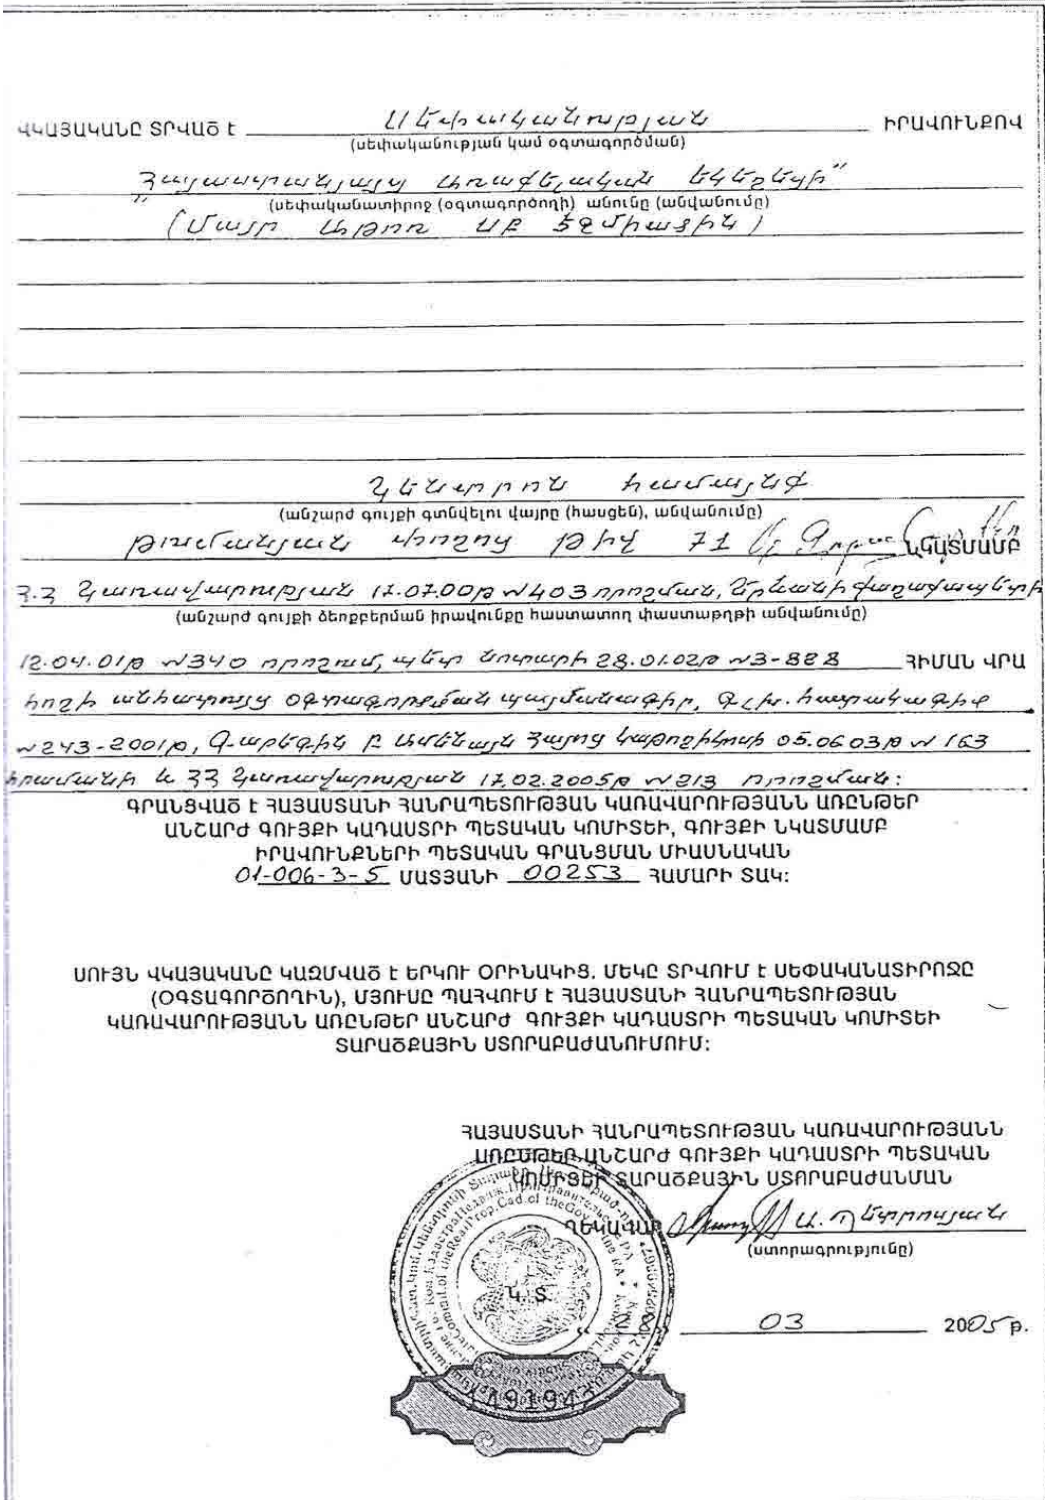 ՎԿԱՅԱԿԱՆԸ ՏՐՎԱԾ Է Սեփականության ԻՐԱՎՈՒՆՔՈՎ
(սեփականության կամ օգտագործման)
"Հայաստանյայց Առաքելական Եկեղեցի"
(սեփականատիրոջ (օգտագործողի) անունը (անվանումը)
(Մայր Աթոռ ՍԲ Էջմիածին)
Կենտրոն համայնք
(անշարժ գույքի գտնվելու վայրը (հասցեն), անվանումը)
Թումանյան փողոց թիվ 71 ՆԿԱՏՄԱՄԲ
Հ.Հ Կառավարության 17.07.00թ N403 որոշման, Երևանի քաղաքապետի
(անշարժ գույքի ձեռքբերման իրավունքը հաստատող փաստաթղթի անվանումը)
12.04.01թ N340 որոշում, պետ նոտարի 28.01.02թ N3-828 ՀԻՄԱՆ ՎՐԱ
հողի անհատույց օգտագործման պայմանագիր, գլխ. հատակագիծ
N243-2001թ, Գարեգին Բ Ամենայն Հայոց կաթողիկոսի 05.06 03թ N 163
հրամանի և ՀՀ Կառավարության 17.02.2005թ N213 որոշման:
ԳՐԱՆՑՎԱԾ Է ՀԱՅԱՍՏԱՆԻ ՀԱՆՐԱՊԵՏՈՒԹՅԱՆ ԿԱՌԱՎԱՐՈՒԹՅԱՆՆ ԱՌԸՆԹԵՐ
ԱՆՇԱՐԺ ԳՈՒՅՔԻ ԿԱԴԱՍՏՐԻ ՊԵՏԱԿԱՆ ԿՈՄԻՏԵԻ, ԳՈՒՅՔԻ ՆԿԱՏՄԱՄԲ
ԻՐԱՎՈՒՆՔՆԵՐԻ ՊԵՏԱԿԱՆ ԳՐԱՆՑՄԱՆ ՄԻԱՍՆԱԿԱՆ
01-006-3-5 ՄԱՏՅԱՆԻ 00253 ՀԱՄԱՐԻ ՏԱԿ:
ՍՈՒՅՆ ՎԿԱՅԱԿԱՆԸ ԿԱԶՄՎԱԾ Է ԵՐԿՈՒ ՕՐԻՆԱԿԻՑ. ՄԵԿԸ ՏՐՎՈՒՄ Է ՍԵՓԱԿԱՆԱՏԻՐՈՋԸ
(ՕԳՏԱԳՈՐԾՈՂԻՆ), ՄՅՈՒՍԸ ՊԱՀՎՈՒՄ Է ՀԱՅԱՍՏԱՆԻ ՀԱՆՐԱՊԵՏՈՒԹՅԱՆ
ԿԱՌԱՎԱՐՈՒԹՅԱՆՆ ԱՌԸՆԹԵՐ ԱՆՇԱՐԺ ԳՈՒՅՔԻ ԿԱԴԱՍՏՐԻ ՊԵՏԱԿԱՆ ԿՈՄԻՏԵԻ
ՏԱՐԱԾՔԱՅԻՆ ՍՏՈՐԱԲԱԺԱՆՈՒՄՈՒՄ:
ՀԱՅԱՍՏԱՆԻ ՀԱՆՐԱՊԵՏՈՒԹՅԱՆ ԿԱՌԱՎԱՐՈՒԹՅԱՆՆ
ԱՌԸՆԹԵՐ ԱՆՇԱՐԺ ԳՈՒՅՔԻ ԿԱԴԱՍՏՐԻ ՊԵՏԱԿԱՆ
ԿՈՄԻՏԵԻ ՏԱՐԱԾՔԱՅԻՆ ՍՏՈՐԱԲԱԺԱՆՄԱՆ
ՂԵԿԱՎԱՐ Ա. Պետրոսյան
(ստորագրությունը)
Կ. Տ.
03 2005 թ.
1491947